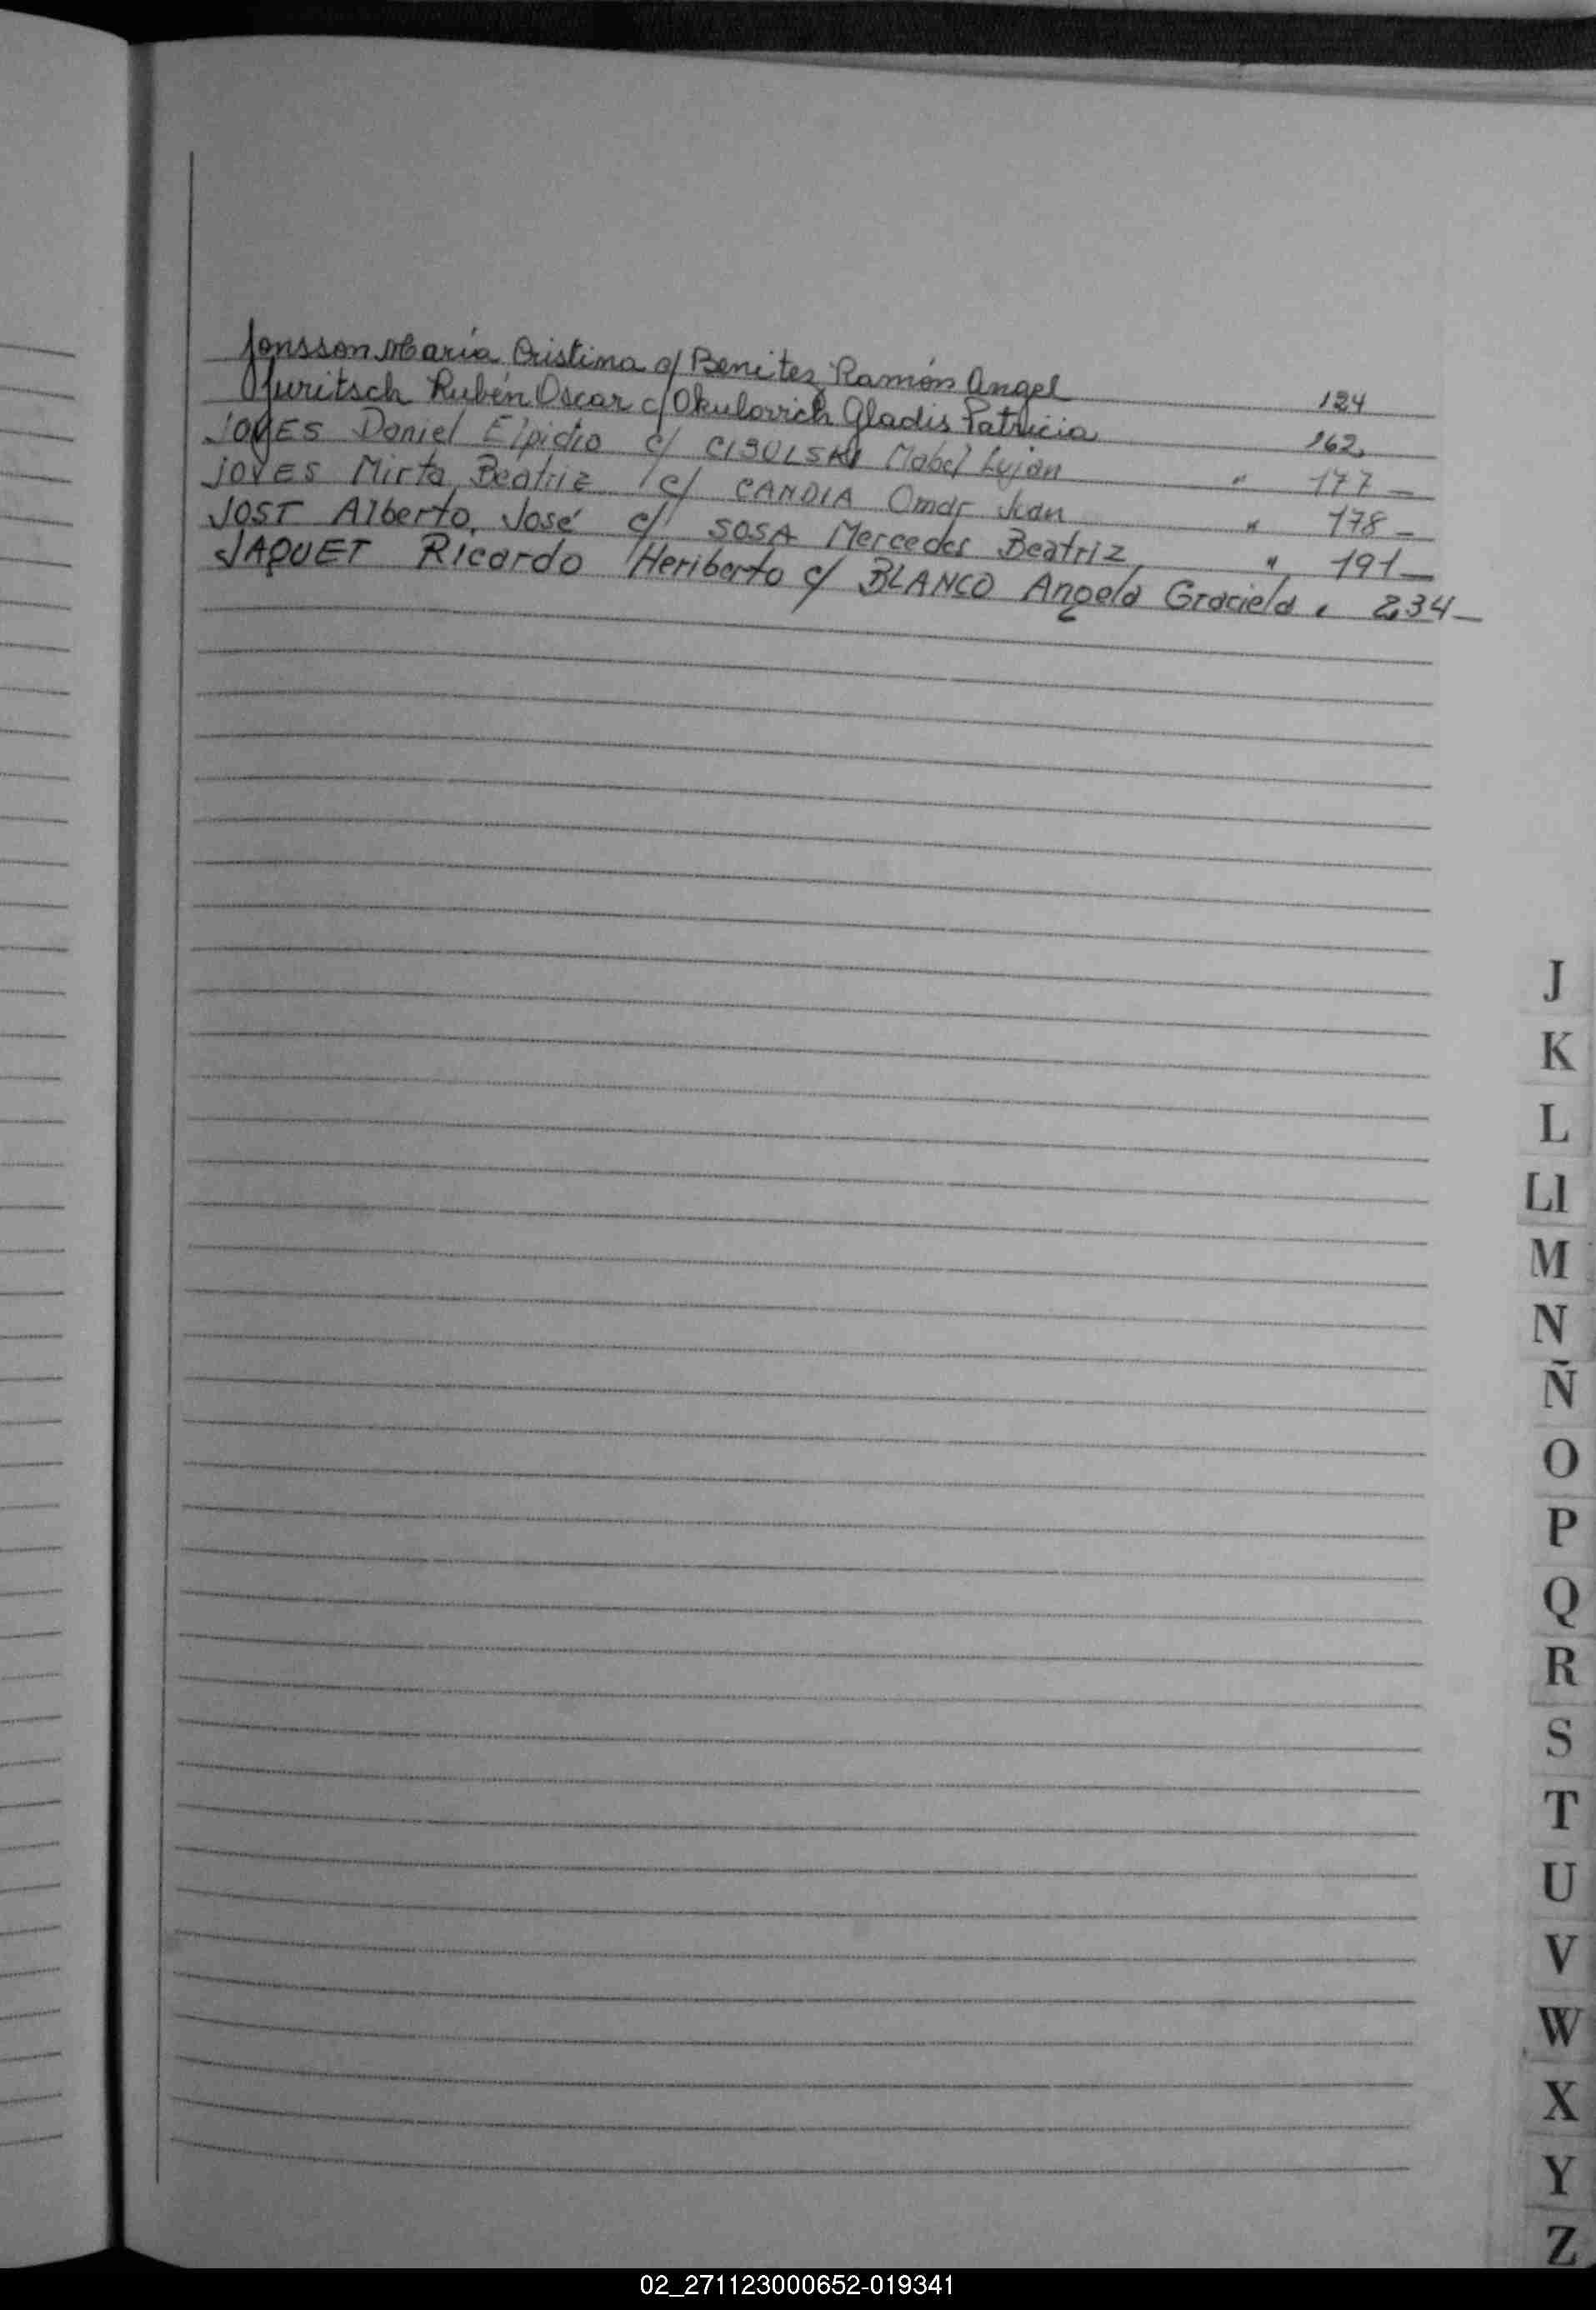 Jonsson María Cristina c/ Benitez Ramón Angel 124
Juritsch Rubén Oscar c/ Okulovich Gladis Patricia 162,
JOVES Daniel Elpidio c/ CIBULSKI Mabel Lujan " 177 -
JOVES Mirta Beatriz c/ CANDIA Omar Juan " 178 -
JOST Alberto José c/ SOSA Mercedes Beatriz " 191 -
JAQUET Ricardo Heriberto c/ BLANCO Angela Graciela " 234 -
J
K
L
Ll
M
N
Ñ
O
P
Q
R
S
T
U
V
W
X
Y
Z
02_271123000652-019341